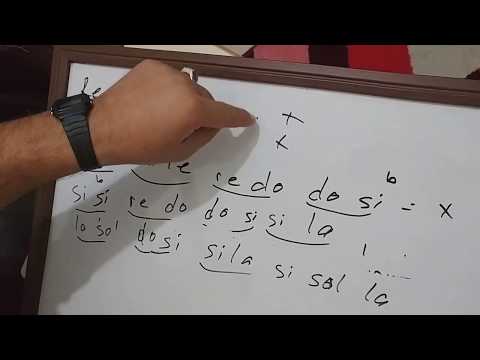 T
x
re do do si b = x
si si re do do si si la
la sol do si si la si sol la